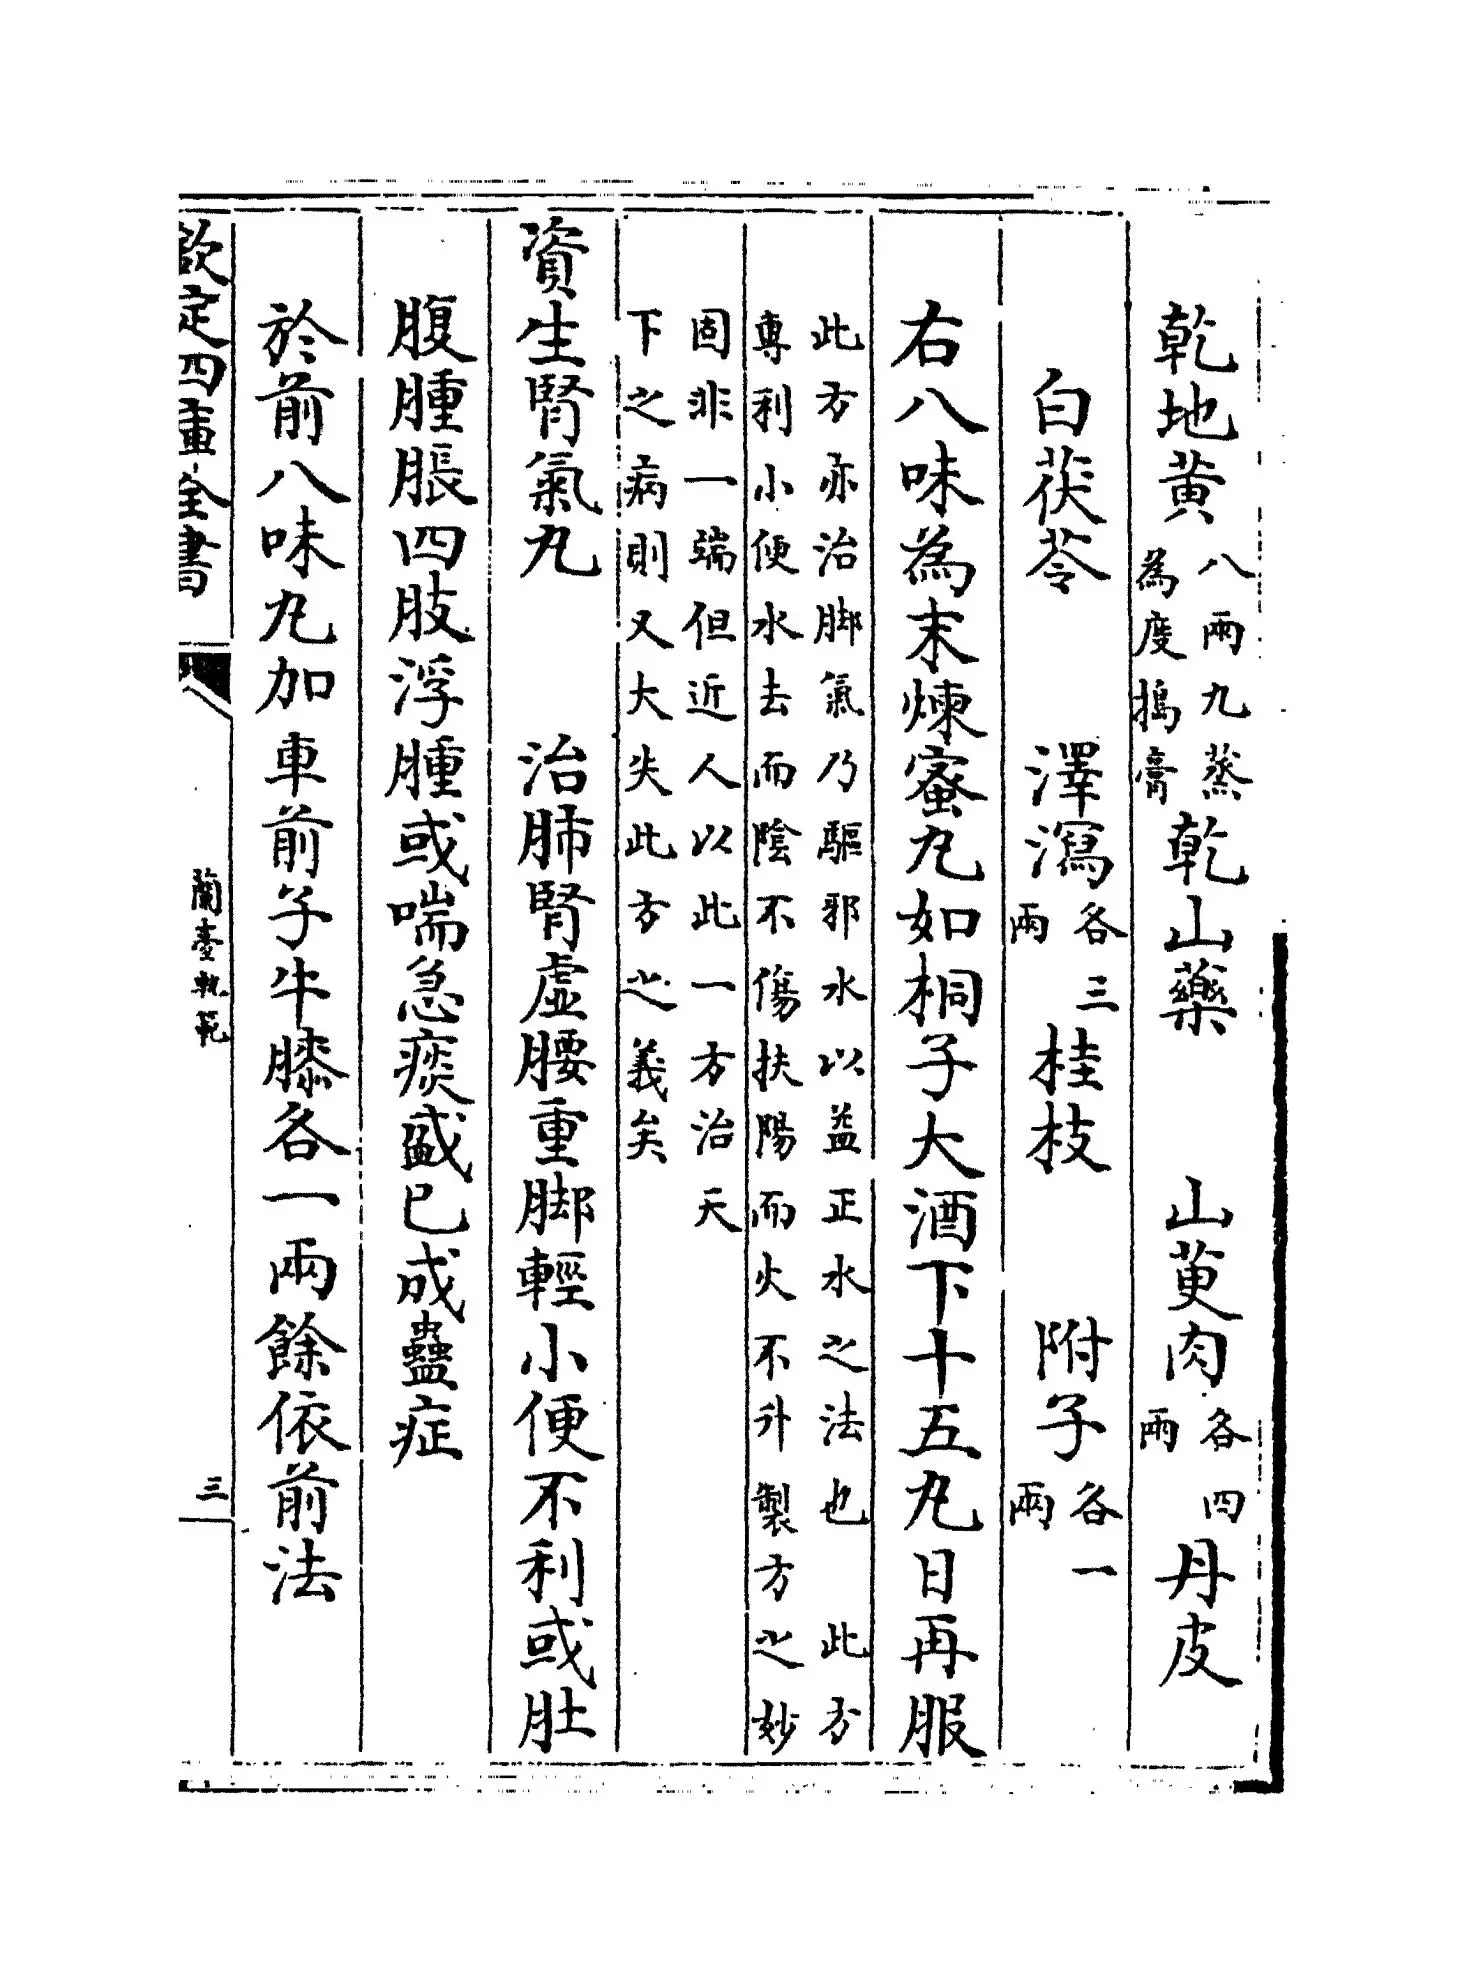 乾地黄八兩九蒸為度搗膏乾山藥 山萸肉各四兩丹皮
白茯苓 澤瀉各三兩桂枝 附子各一兩
右八味為末煉蜜丸如桐子大酒下十五丸日再服
此方亦治脚氣乃驅邪水以益正水之法也 此方
專利小便水去而陰不傷扶陽而火不升製方之妙
固非一端但近人以此一方治天
下之病則又大失此方之義矣
資生腎氣丸 治肺腎虛腰重脚輕小便不利或肚
腹腫脹四肢浮腫或喘急痰盛已成蠱症
於前八味丸加車前子牛膝各一兩餘依前法
欽定四庫全書
蘭臺軌範
三